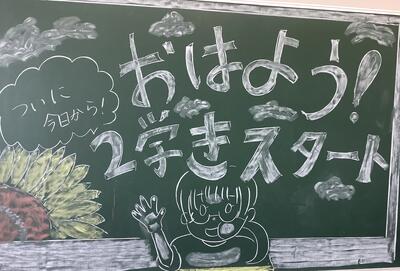 おはよう!
2学きスタート
ついに
今日から!